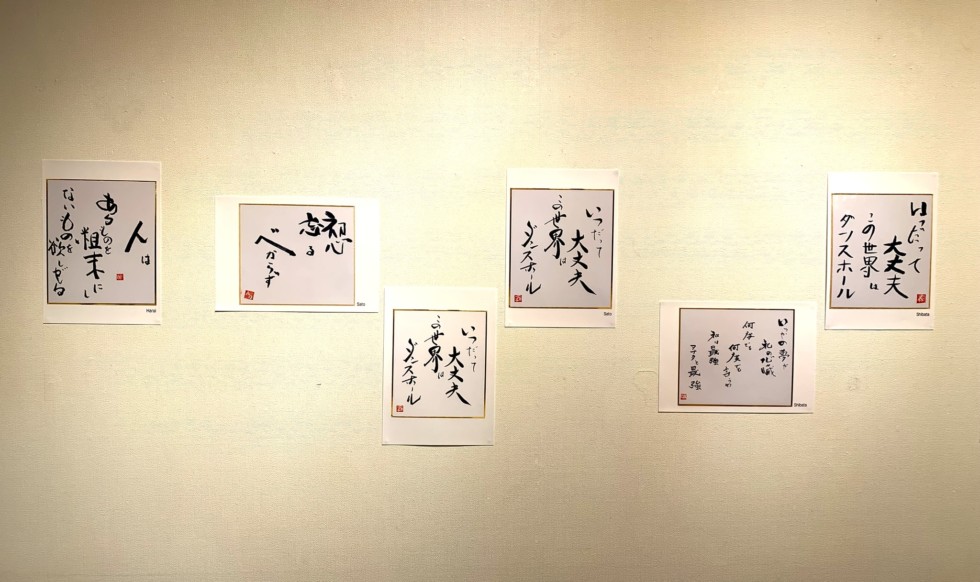 人は
あるものを
粗末にし
ないものを
欲しがる
初心
忘る
べからず
Sato
いつだって
大丈夫
この世界は
ダンスホール
いつだって
大丈夫
この世界は
ダンスホール
Sato
いつかの夢が
私の心臓
何度でも
何度でも言うわ
私は最強
アナタと最強
Shibata
いつだって
大丈夫
この世界は
ダンスホール
Shibata